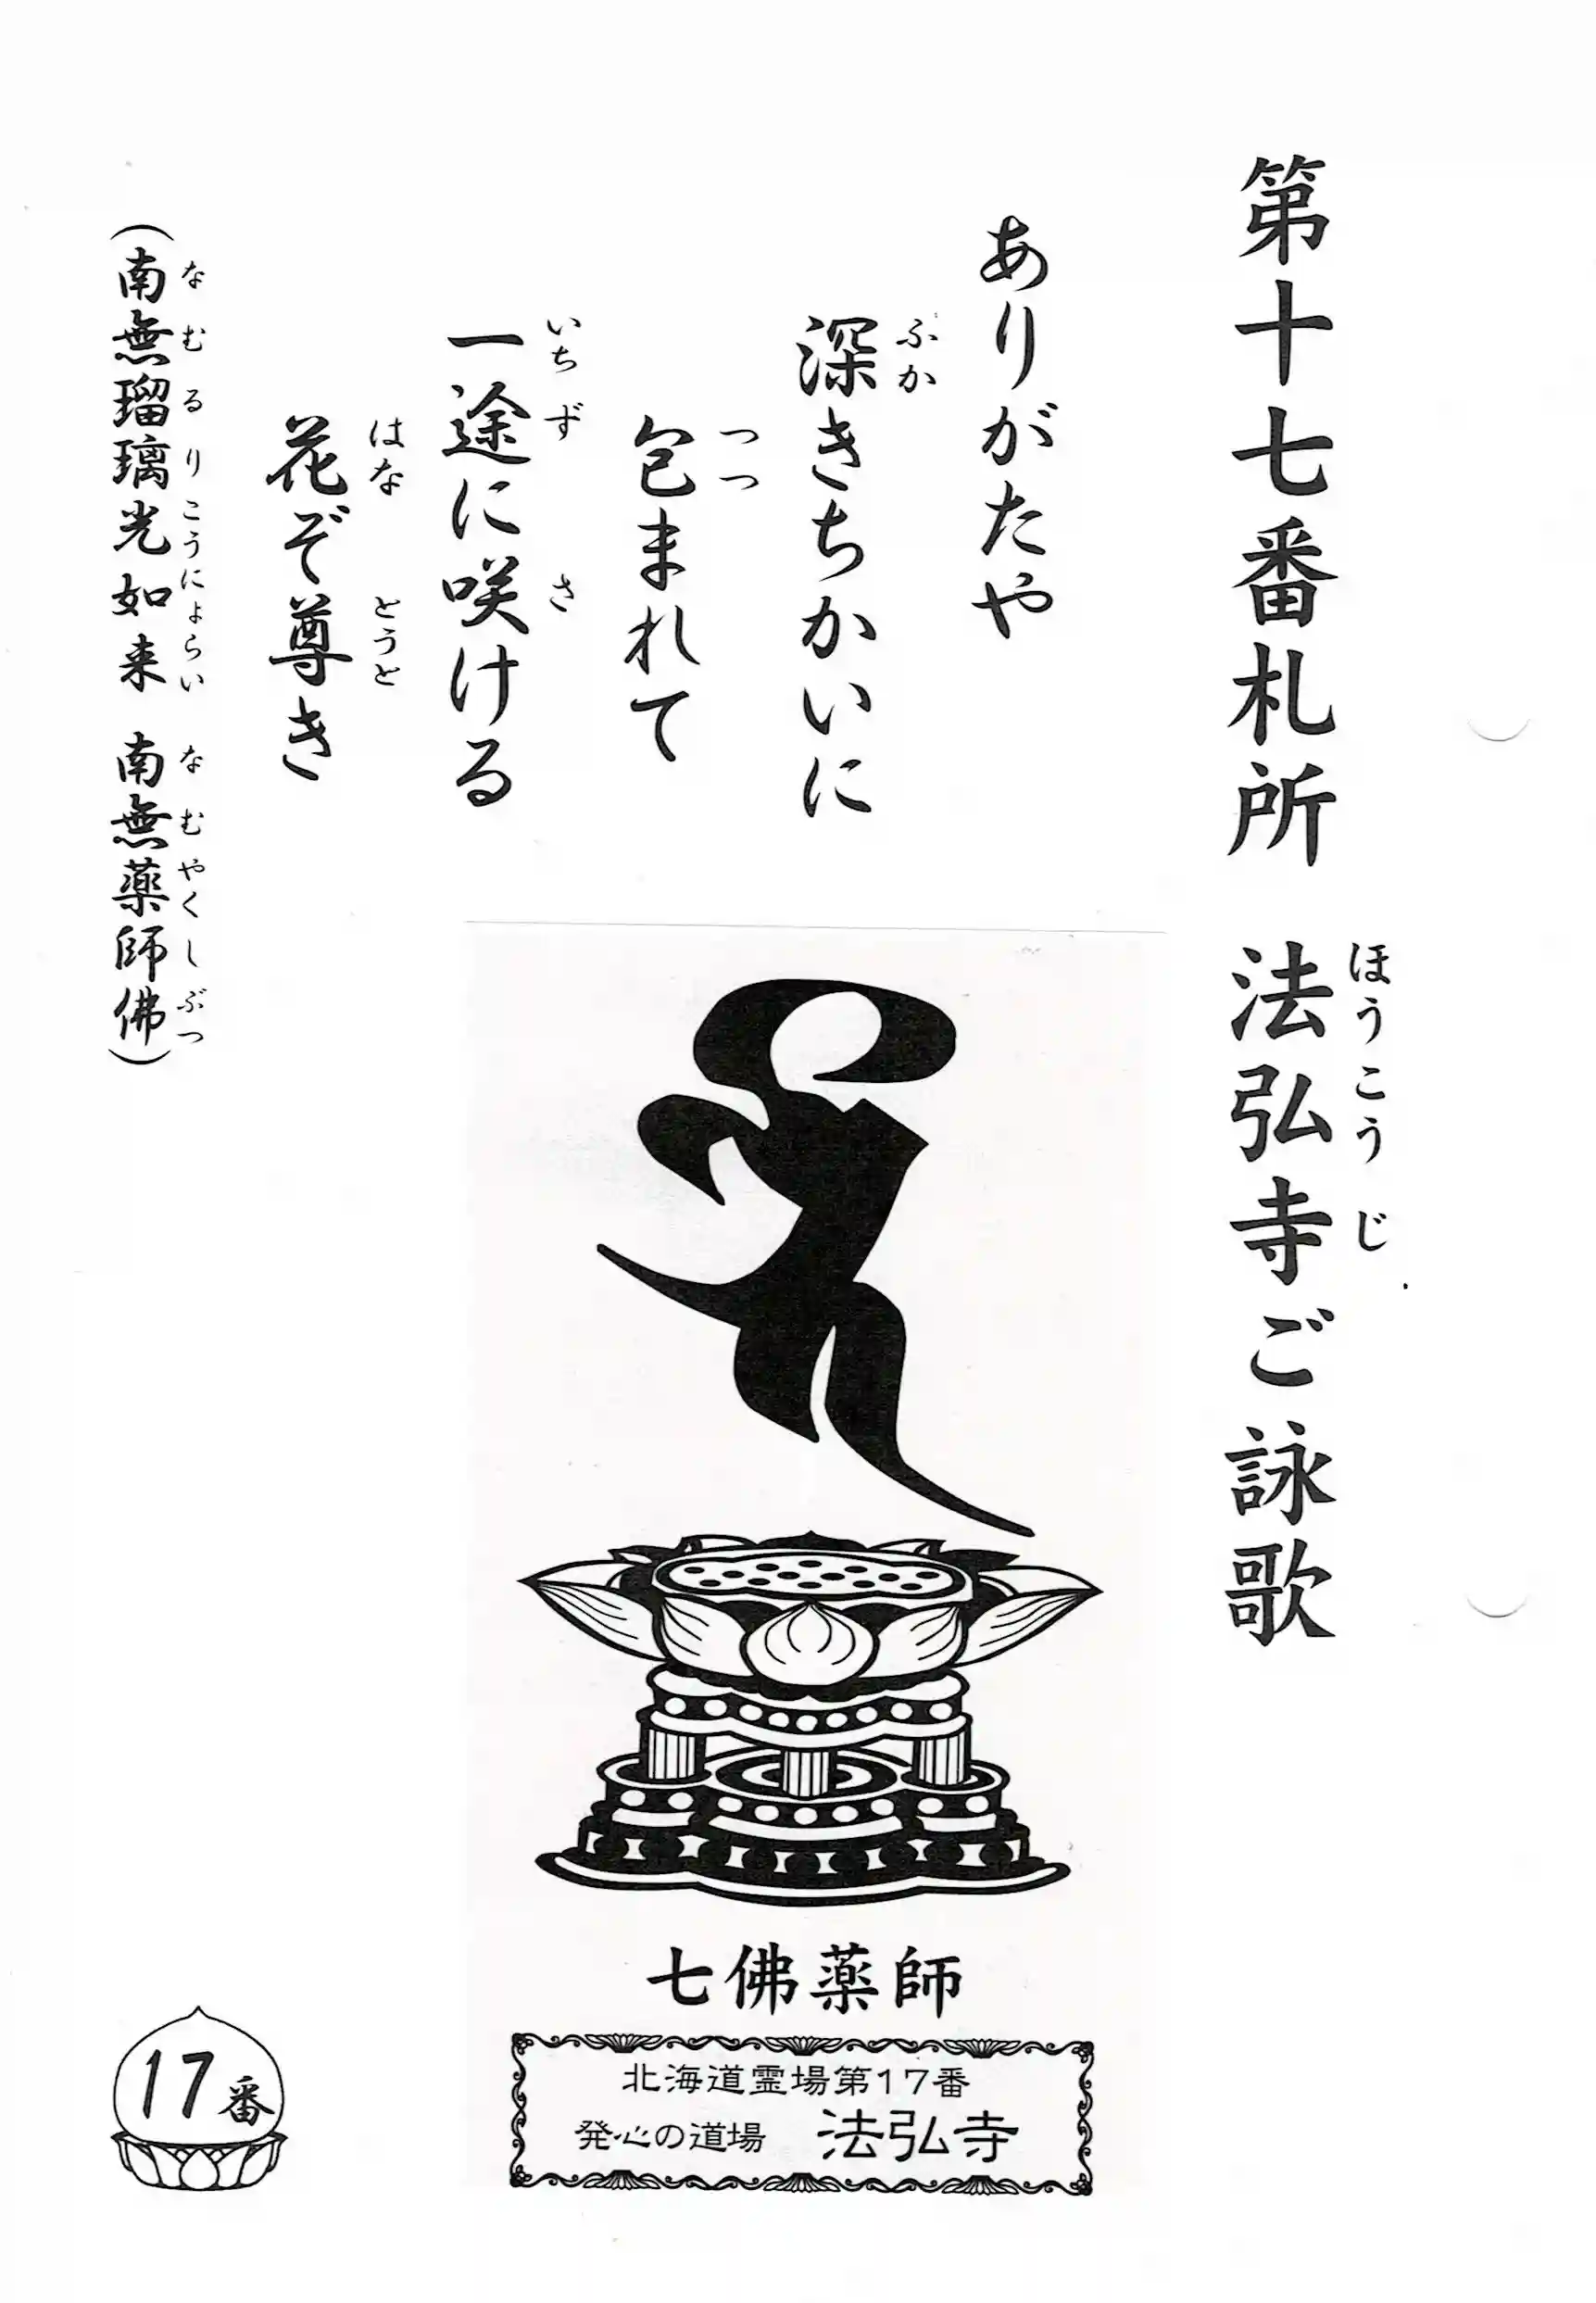 第十七番札所 法弘寺ご詠歌
ほうこうじ
ありがたや
深きちかいに
ぶか
包まれて
つつ
一途に咲ける
いちず さ
花ぞ尊き
はな とうと
(南無瑠璃光如来 南無薬師佛)
なむるりこうにょらい なむやくしぶつ
七佛薬師
北海道霊場第17番
発心の道場 法弘寺
17番